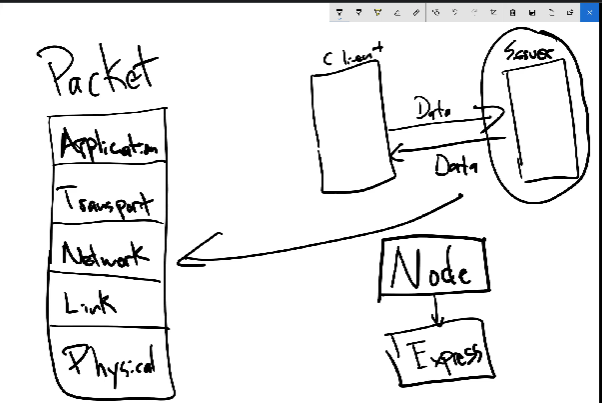 Packet
Application
Transport
Network
Link
Physical
Client
Server
Data
Data
Node
Express